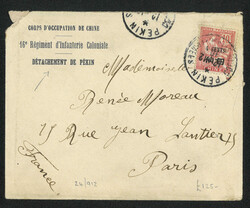 CORPS D'OCCUPATION DE CHINE
16e Régiment d'Infanterie Coloniale
DÉTACHEMENT DE PÉKIN
PÉKIN
PÉKIN
Mademoiselle
Renée Moreau
17 Rue Jean Lantier
Paris
France